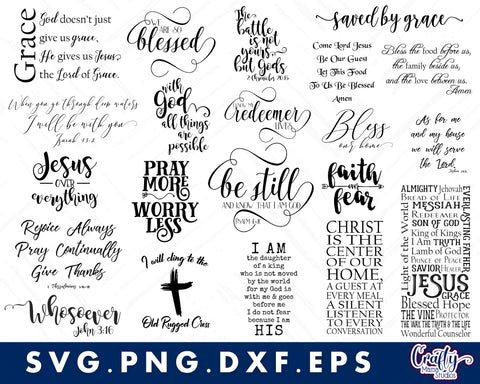 Grace
God doesn't just
give us grace,
He gives us Jesus,
the Lord of Grace.
WE ARE SO
blessed
The
battle is
not yours
but Gods
2 Chronicles 20:15
saved by grace
Come Lord Jesus
Be Our Guest
Let This Food
To Us Be Blessed
Amen
Bless the food before us,
the family beside us,
and the love between us.
Amen
When you go through deep waters
I will be with you
Isaiah 43:2
with
God
all things
are
possible
I KNOW MY
Redeemer
LIVES
Bless
our home
As for me
and my house
we will serve
the Lord.
Jesus
OVER
everything
PRAY
MORE
WORRY
LESS
be still
AND KNOW THAT I AM GOD
PSALM 46:10
faith
over
fear
ALMIGHTY Jehovah
Bread of Life
MESSIAH
REDEEMER
SON OF GOD
King of Kings
I Am TRUTH
Lamb of God
PRINCE OF PEACE
SAVIOR HEALER
JESUS
GRACE
Blessed Hope
THE VINE PROTECTOR
THE WAY, THE TRUTH & THE LIFE
Wonderful Counselor
Light of the World
EVERLASTING FATHER
Rejoice Always
Pray Continually
Give Thanks
I will cling to the
Old Rugged Cross
I AM
the daughter
of a king
who is not moved
by the world
for my God is
with me & goes
before me
I do not fear
because I am
HIS
CHRIST
IS THE
CENTER OF
OUR HOME,
A GUEST AT
EVERY MEAL,
A SILENT
LISTENER
TO EVERY
CONVERSATION
Whosoever
John 3:16
SVG.PNG.DXF.EPS
Crafty
Mama
Studios